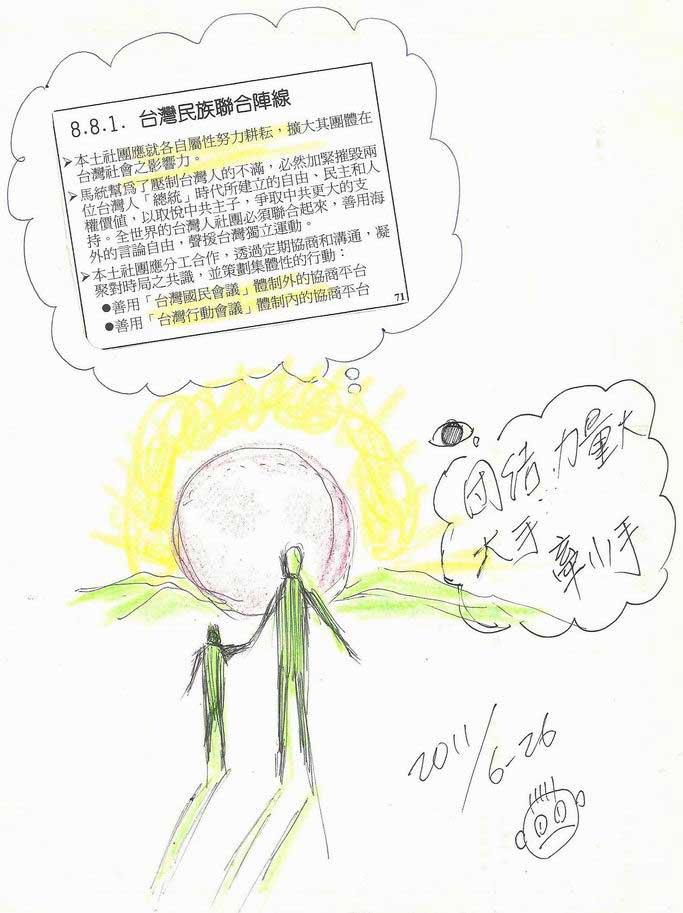 8.8.1. 台灣民族聯合陣線
➤本土社團應就各自屬性努力耕耘，擴大其團體在
台灣社會之影響力。
➤馬統幫為了壓制台灣人的不滿，必然加緊摧毀兩
位台灣人「總統」時代所建立的自由、民主和人
權價值，以取悅中共主子，爭取中共更大的支
持。全世界的台灣人社團必須聯合起來，善用海
外的言論自由，聲援台灣獨立運動。
➤本土社團應分工合作，透過定期協商和溝通，凝
聚對時局之共識，並策劃集體性的行動：
●善用「台灣國民會議」體制外的協商平台
●善用「台灣行動會議」體制內的協商平台
71
团结力量大
大手牽小手
2011/6-26